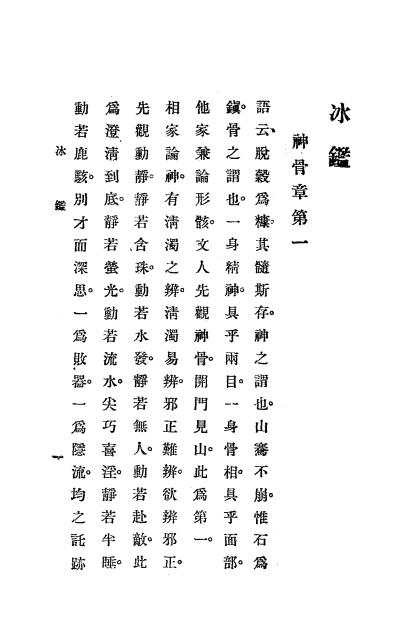 冰鑑
神骨章第一
語云、脫穀爲糠。其髓斯存。神之謂也。山騫不崩。惟石爲
鎭。骨之謂也。一身精神。具乎兩目。一身骨相。具乎面部。
他家兼論形骸。文人先觀神骨。開門見山。此爲第一。
相家論神。有淸濁之辨。淸濁易辨。邪正難辨。欲辨邪正。
先觀動靜。靜若含珠。動若水發。靜若無人。動若赴敵。此
爲澄淸到底。靜若螢光。動若流水。尖巧喜淫。靜若半睡。
動若鹿駭。別才而深思。一爲敗器。一爲隱流。均之託跡
冰鑑
一